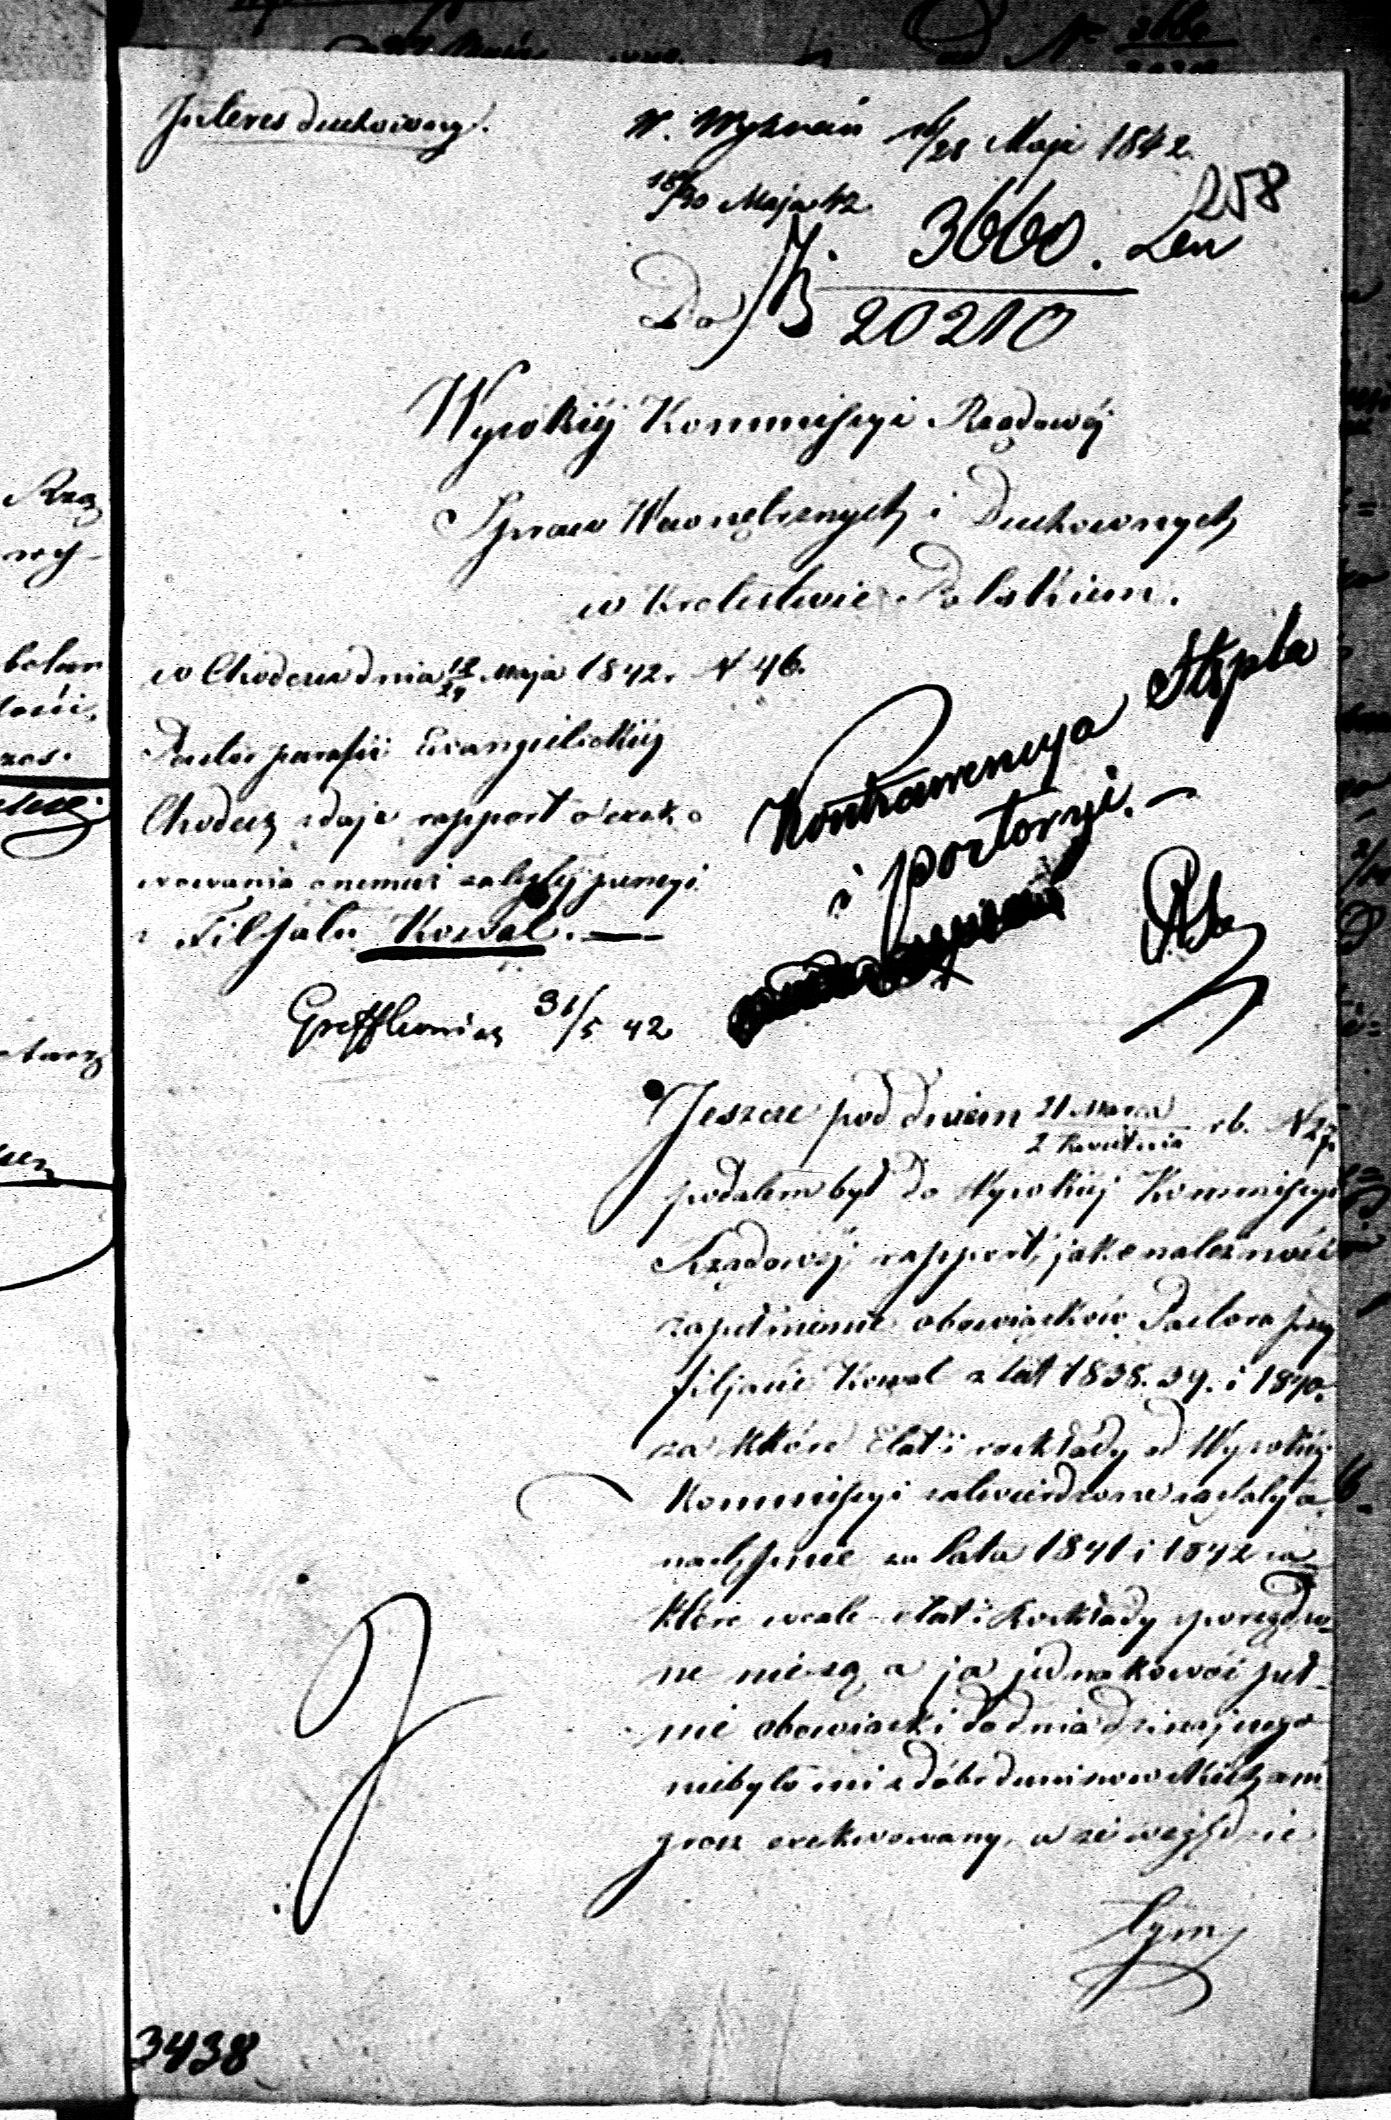 Interes duchowny.
W. Wyznań 16/28 Maja 1842.
18/30 Maja 42
258
3660. Len
20210
Do
Wysokiéj Kommissyi Rządowéj
Spraw Wewnętrznych i Duchownych
w Królestwie Polskiem.
w Chodczu dnia 12/24 Maja 1842. N 46.
Pastor parafii Ewangielickiéj
Chodecz zdaje rapport o exek
wowania onemuż zaległéj pensyi
z Filjału Kowal.
31/5 42
Kontrawencya Stępla
i portoryi.
Jeszcze pod dniem 21 Marca / 2 Kwietnia rb. N 27.
podałem był do Wysokiéj Kommissyi
Rządowéj rapport, jako należność
za pełnienie obowiązków Pastora przy
filjale Kowal z lat 1838. 39. i 1840.
za które Etat i rozkłady od Wysokiéj
Kommissyi zatwierdzone zostały a
następnie za lata 1841 i 1842 za
które wcale etat i Rozkłady sporządzo
ne nie są a ja jednakowoż peł-
nię obowiązki do dnia dzisiejszego
niebyło mi z dóbr duninowskich ani
grosz exekwowany, a że względnie
tym
3438